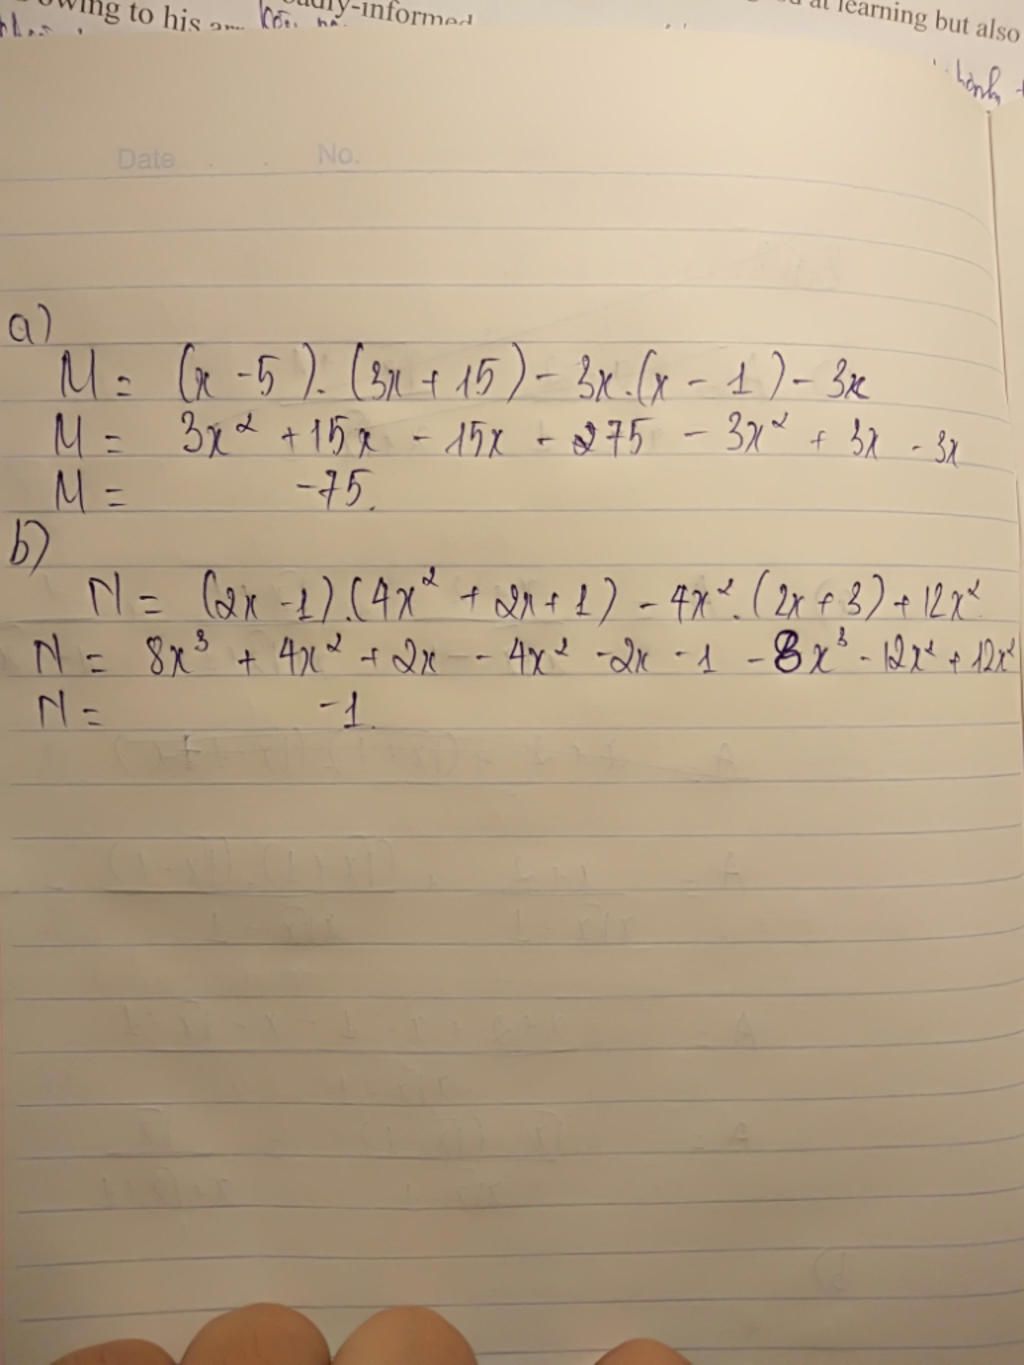 owing to his
-informed
at learning but also
hành
Date . . No.
a)
M = (x - 5).(3x + 15) - 3x.(x - 1) - 3x
M = 3x² + 15x - 15x - 275 - 3x² + 3x - 3x
M = -75.
b)
N = (2x - 1).(4x² + 2x + 1) - 4x².(2x + 3) + 12x²
N = 8x³ + 4x² + 2x - 4x² - 2x - 1 - 8x³ - 12x² + 12x²
N = -1.